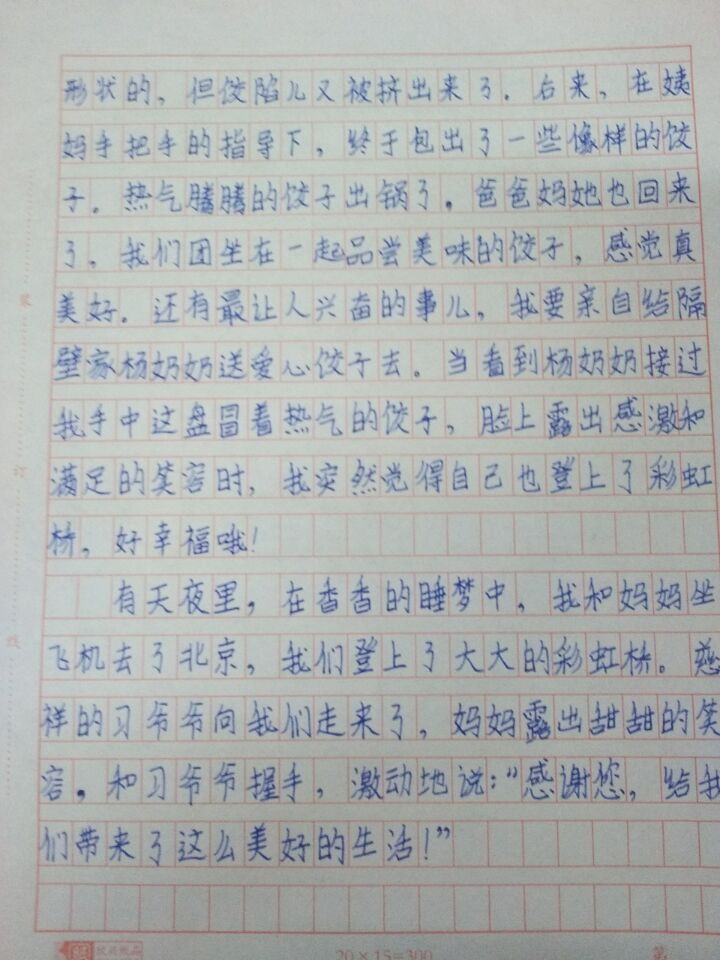 形状的，但饺陷儿又被挤出来了。后来，在姨
妈手把手的指导下，终于包出了一些像样的饺
子。热气腾腾的饺子出锅了，爸爸妈她也回来
了，我们团坐在一起品尝美味的饺子，感觉真
美好。还有最让人兴奋的事儿，我要亲自给隔
壁家杨奶奶送爱心饺子去。当看到杨奶奶接过
我手中这盘冒着热气的饺子，脸上露出感激和
满足的笑容时，我突然觉得自己也登上了彩虹
桥，好幸福哦！
有天夜里，在香香的睡梦中，我和妈妈坐
飞机去了北京，我们登上了大大的彩虹桥。慈
祥的习爷爷向我们走来了，妈妈露出甜甜的笑
容，和习爷爷握手，激动地说：“感谢您，给我
们带来了这么美好的生活！”
装
订
线
20×15=300
第